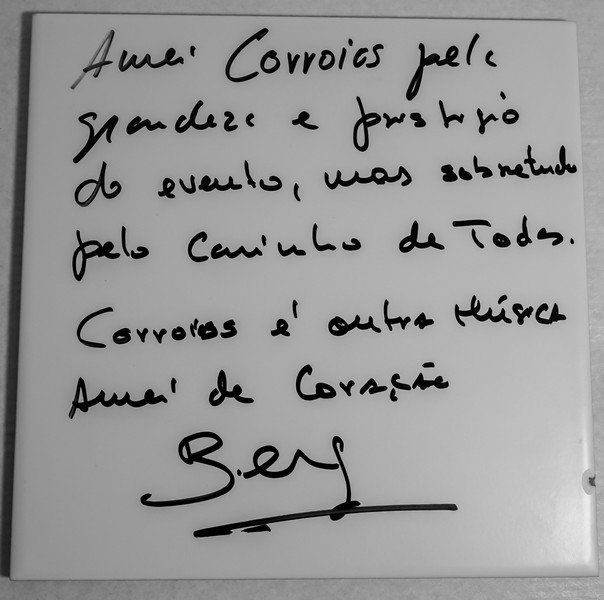 Amei Corroios pela
grandeza e prestígio
do evento, mas sobretudo
pelo carinho de Todos.
Corroios é outra Música
Amei de Coração
Berg